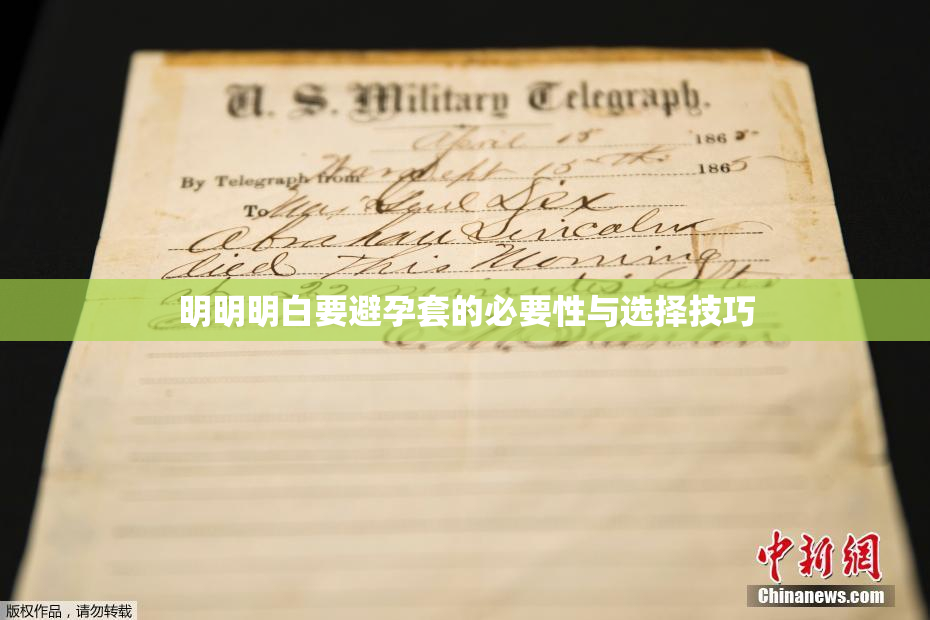 U. S. Military Telegraph.
April 15 1865-
By Telegraph from War Dept 15th 1865
To Maj Genl Dix
Abraham Lincoln
died This Morning
at 22 minutes after
明明明白要避孕套的必要性与选择技巧
E. M. Stanton
中新网
Chinanews.com
版权作品，请勿转载